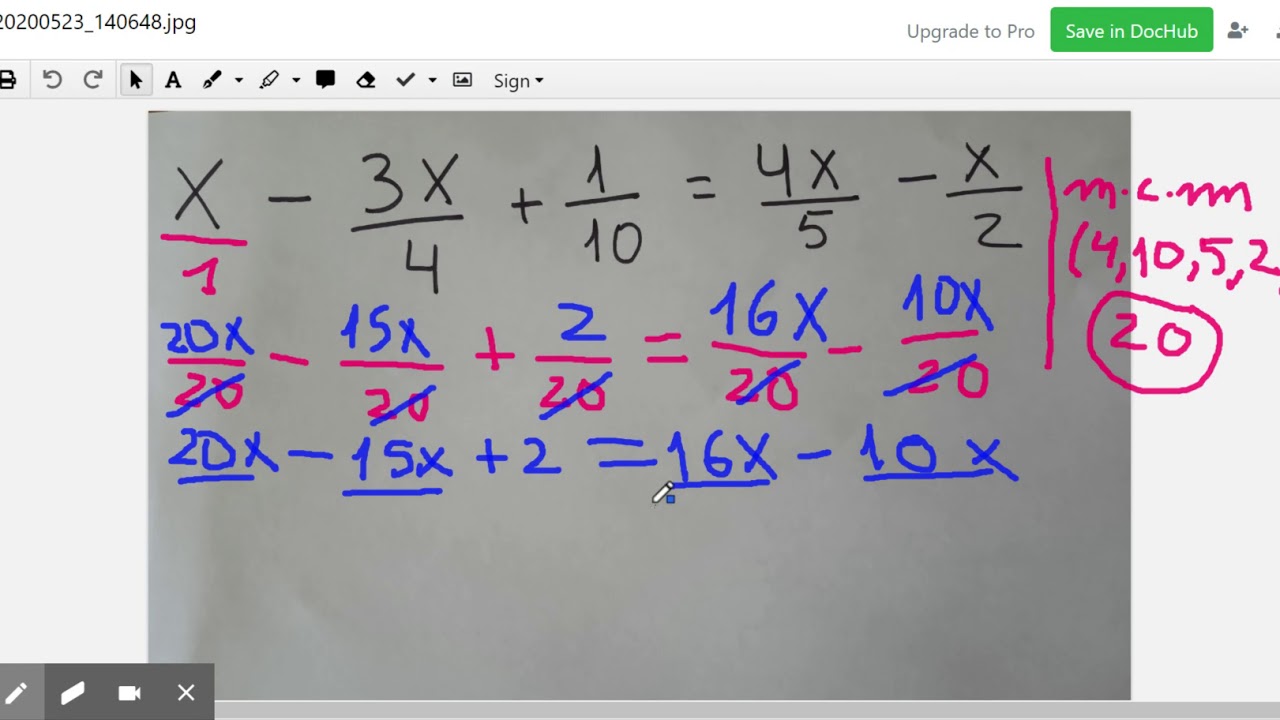 20200523_140648.jpg
Upgrade to Pro
Save in DocHub
A
Sign
x/1 - 3x/4 + 1/10 = 4x/5 - x/2
m.c.m
(4,10,5,2
20
20x/20 - 15x/20 + 2/20 = 16x/20 - 10x/20
20x - 15x + 2 = 16x - 10x